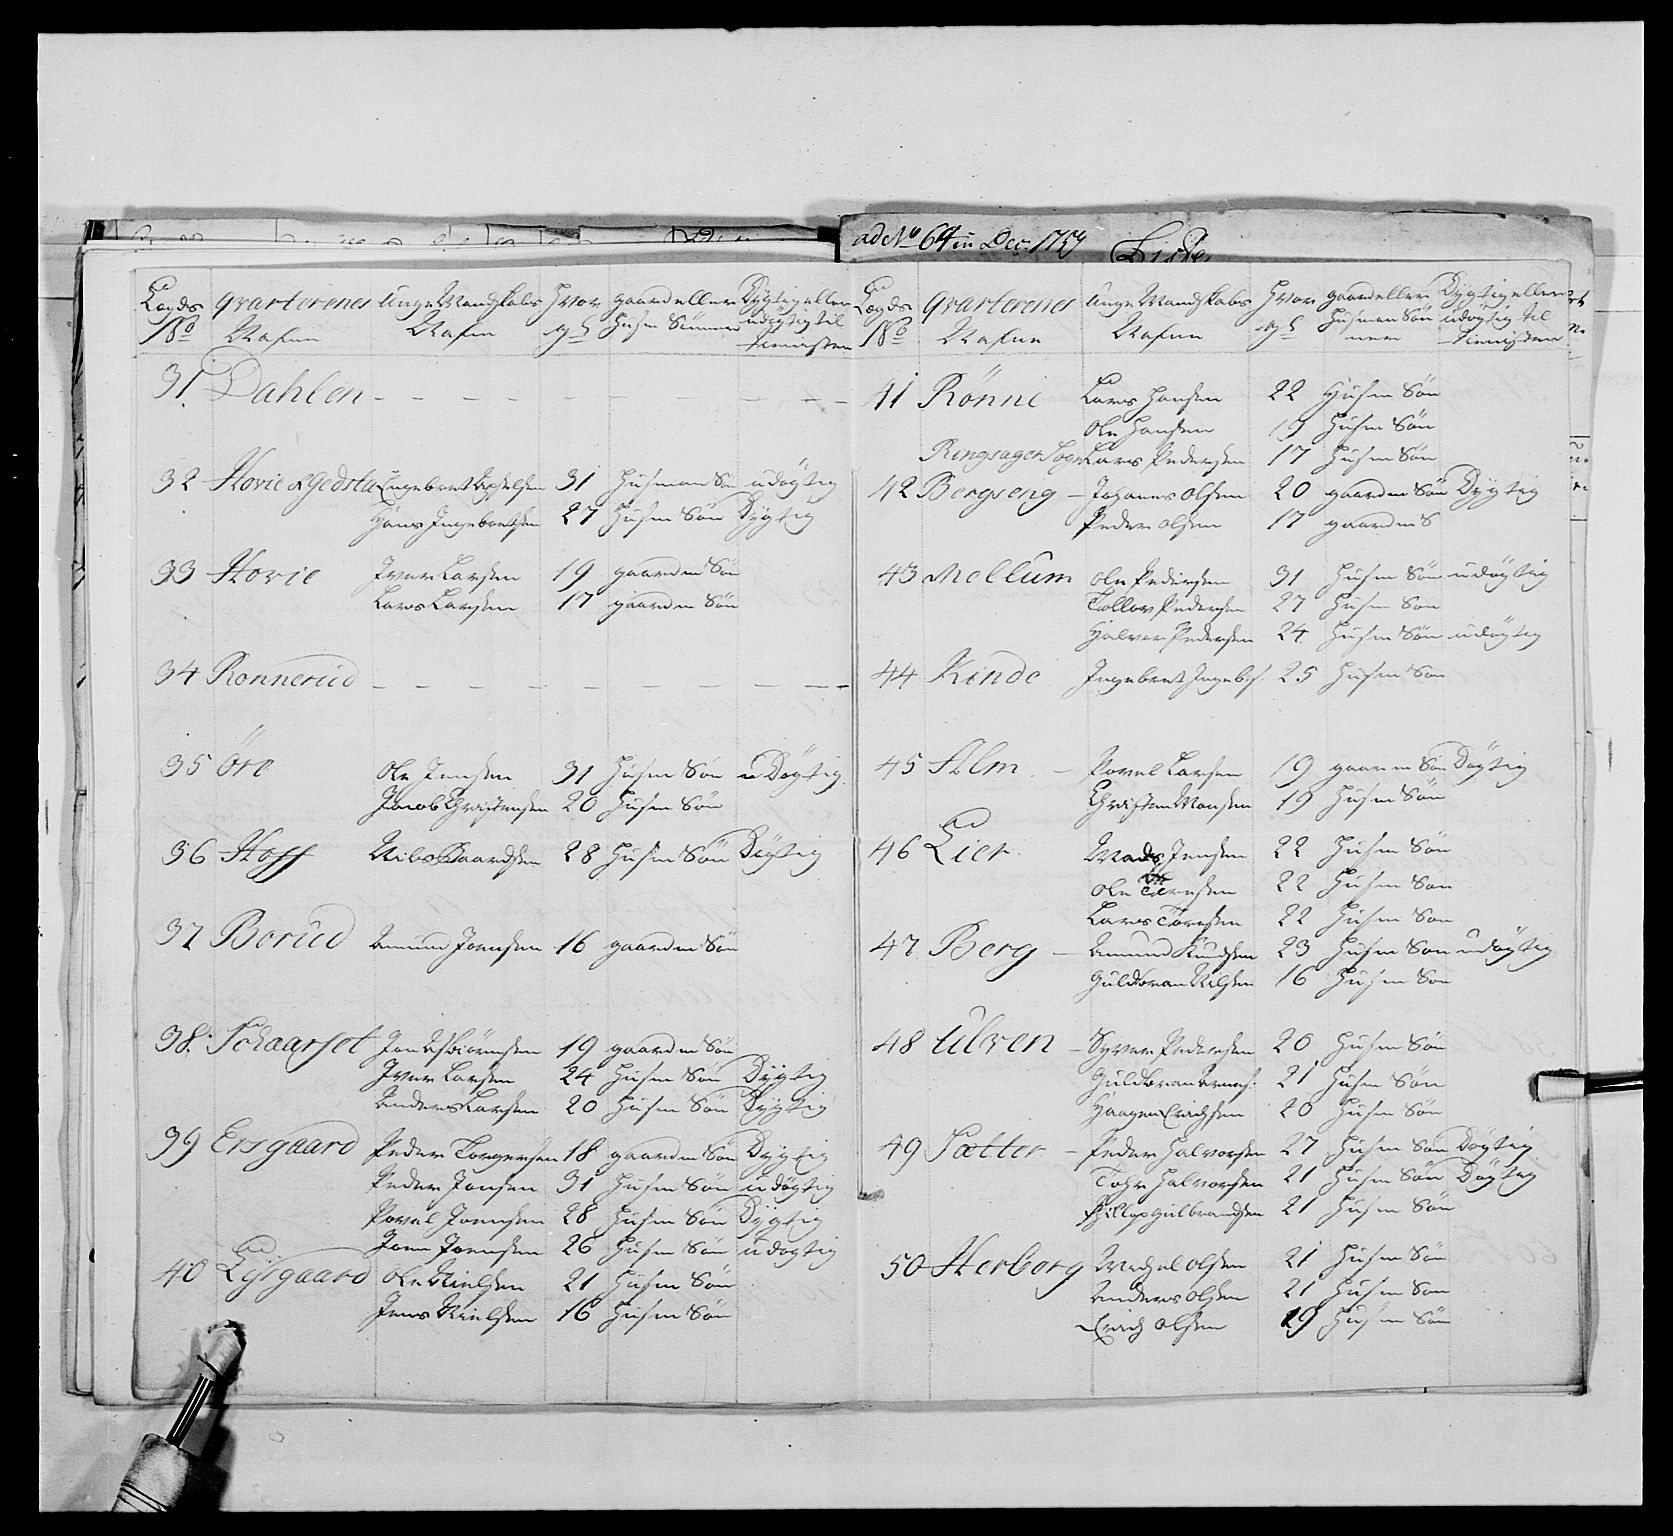 ad No 64 in Dec: 1754
Liste
Lægds No | qvarterenes Nafne | unge Mandskabs Nafne | Hvor gl | gaard eller Husm Sönner | Dygtig eller udögtig til tienisten
31. Dahlen - - - - - - - -
32 Hovie Engebret 31 Husmand Sön udögtig
Hans Ingebretsen 27 Husm Sön Dygtig
33 Hovie Iver Larsen 19 gaardm Sön
Lars Larsen 17 gaardm Sön
34 Ronnerud - - - - - - - -
35 Öre Ole Jensen 31 Husm Sön uDögtig
Jacob Christensen 20 Husm Sön
36 Hoff Nils Baardsen 28 Husm Sön Dögtig
37 Borud Amund Joensen 16 gaardm Sön
38. Schaarset Jon Asbiörnsen 19 gaardm Sön
Iver Larsen 24 Husm Sön Dygtig
Anders Larsen 20 Husm Sön Dygtig
39 Ersgaard Peder Torgersen 18 gaardm Sön Dygtig
Peder Jonsen 31 Husm Sön udögtig
Povel Joensen 28 Husm Sön Dygtig
Joen Joensen 26 Husm Sön udögtig
40 Lysgaard Ole Nielsen 21 Husm Sön
Jens Nielsen 16 Husm Sön
Lægds No | qvarterenes Nafne | unge Mandskabs Nafne | Hvor gl | gaard eller Husmen Sönner | Dygtig eller udögtig til tienisten
41 Rönne Lars Hansen 22 Husm Sön
Ole Hansen 19 Husm Sön
Ringsager Sogn Lars Pedersen 17 Husm Sön
42 Bergseng - Johannes Olsen 20 gaardm Sön Dygtig
Peder Olsen 17 gaardm S
43 Mellum Ole Pedersen 31 Husm Sön udögtig
Tollov Pedersen 27 Husm Sön
Halvor Pedersen 24 Husm Sön udögtig
44 Kinde Ingebret Ingebs: 25 Husm Sön
45 Alm - Povel Larsen 19 gaarm Sön Dögtig
Christen Monsen 19 Husm Sön
46 Lier Mads Jensen 22 Husm Sön
Ole 22 Husm Sön
Lars Töresen 22 Husm Sön
47 Berg - Amund Knudsen 23 Husm Sön udögtig
Guldbran Nilsen 16 Husm Sön
48 Ulven - Syver Pedersen 20 Husm Sön
Guldbran 21 Husm Sön
Haagen Erichsen 20 Husm Sön
49 Sætter - Peder Halvorsen 27 Husm Sön Dögtig
Tosten Halvorsen 21 Husm Sön Dögtig
Phillop Gulbrandsen 21 Husm Sön
50 Herborg Michel Olsen 21 Husm Sön
Anders Olsen 21 Husm Sön
Erich Olsen 19 Husm Sön